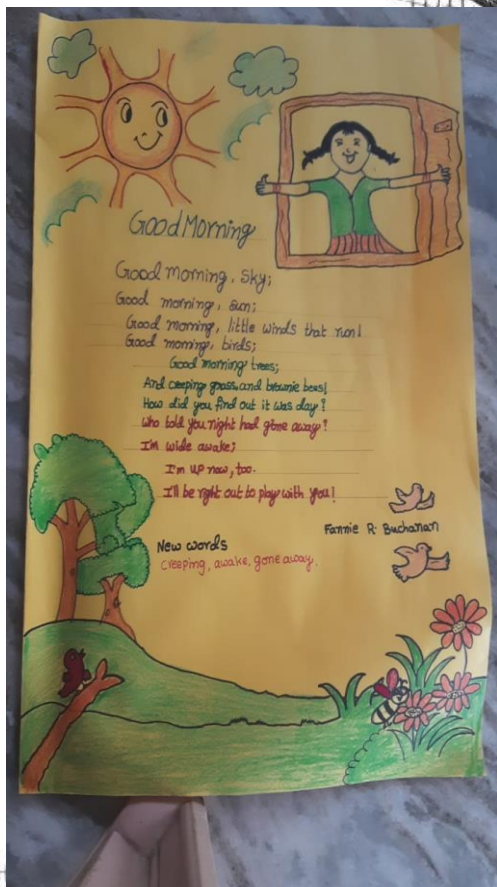 Good Morning
Good morning, sky;
Good morning, sun;
Good morning, little winds that run!
Good morning, birds;
Good morning trees;
And creeping grass, and brownie bees!
How did you find out it was day?
Who told you night had gone away?
I'm wide awake;
I'm up now, too.
I'll be right out to play with you!
Fannie R. Buchanan
New words
creeping, awake, gone away.